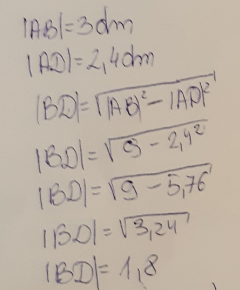 |AB|=3dm
|AD|=2,4dm
|BD|=√|AB|²-|AD|²
|BD|=√9-2,4²
|BD|=√9-5,76
|BD|=√3,24
|BD|=1,8